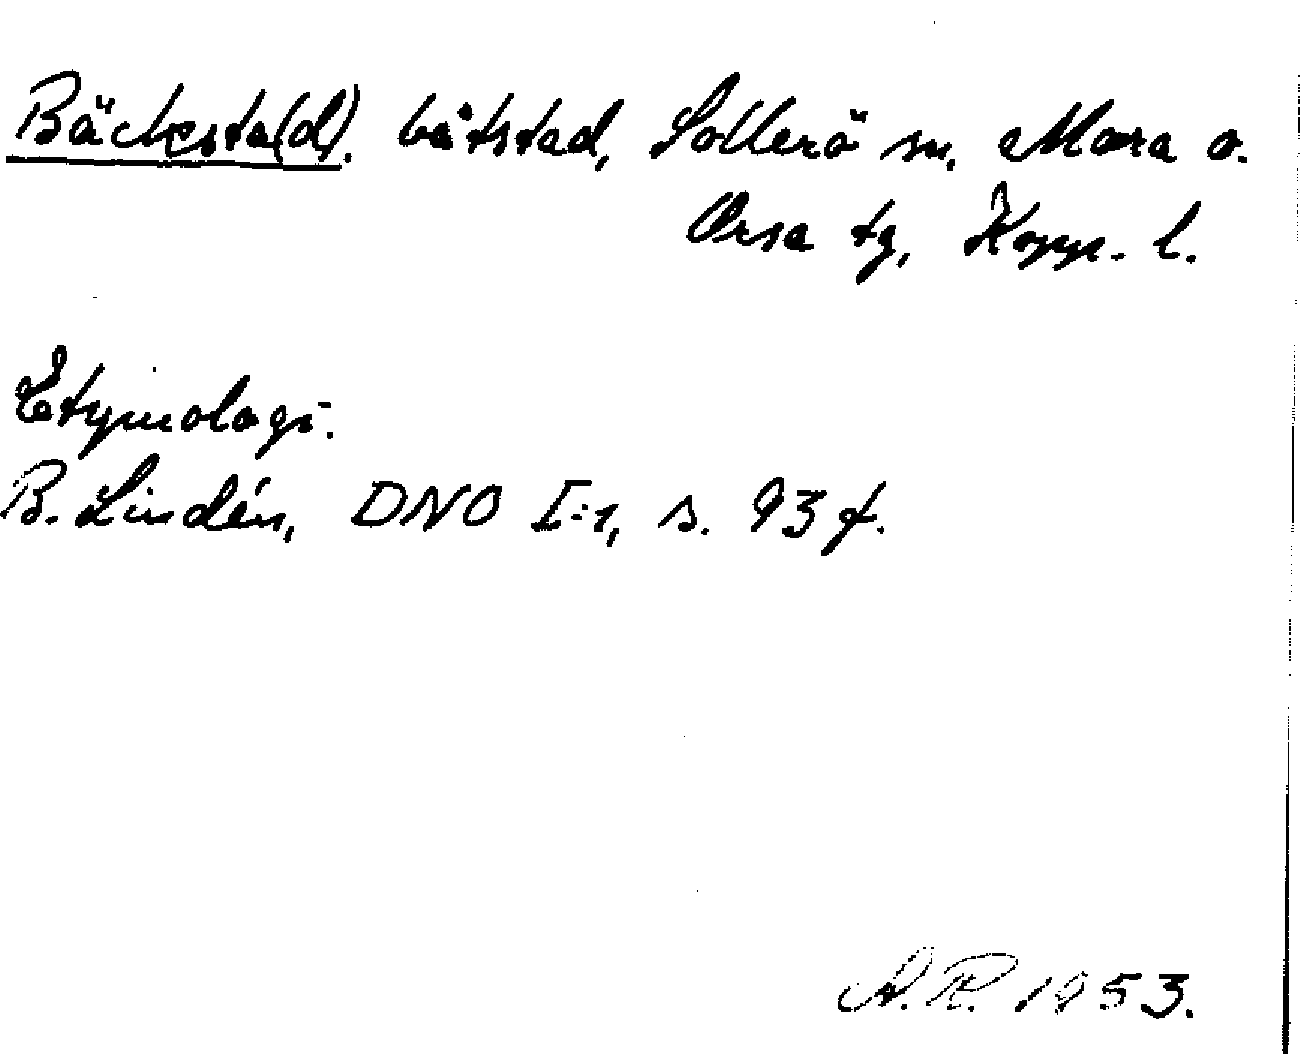 Bäcksta(d). båtstad, Sollerö sn, Mora o.
Orsa tg, Kopp. l.
Etymologi.
B. Lindén, DNO I:1, s. 93 f.
A.R. 1953.